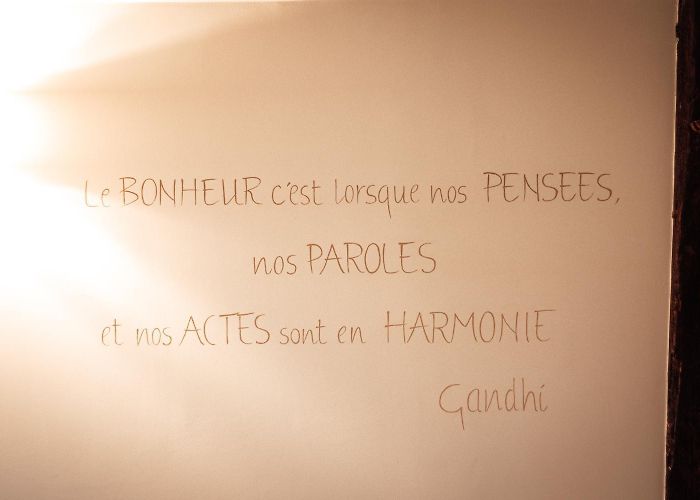 Le BONHEUR c'est lorsque nos PENSEES,
nos PAROLES
et nos ACTES sont en HARMONIE
Gandhi